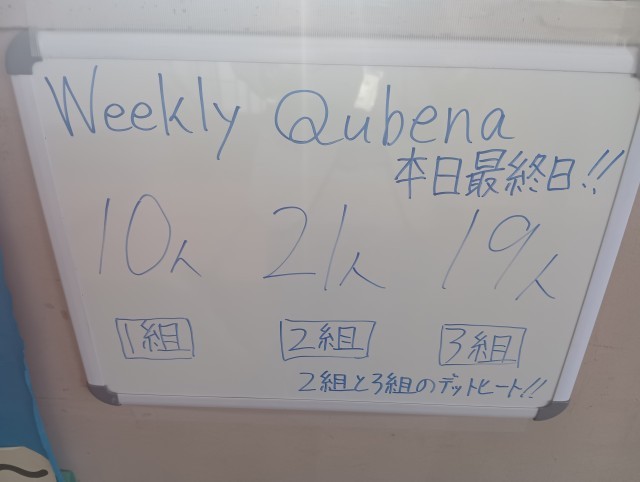 Weekly Qubena
本日最終日!!
10人 21人 19人
1組 2組 3組
2組と3組のデットヒート!!